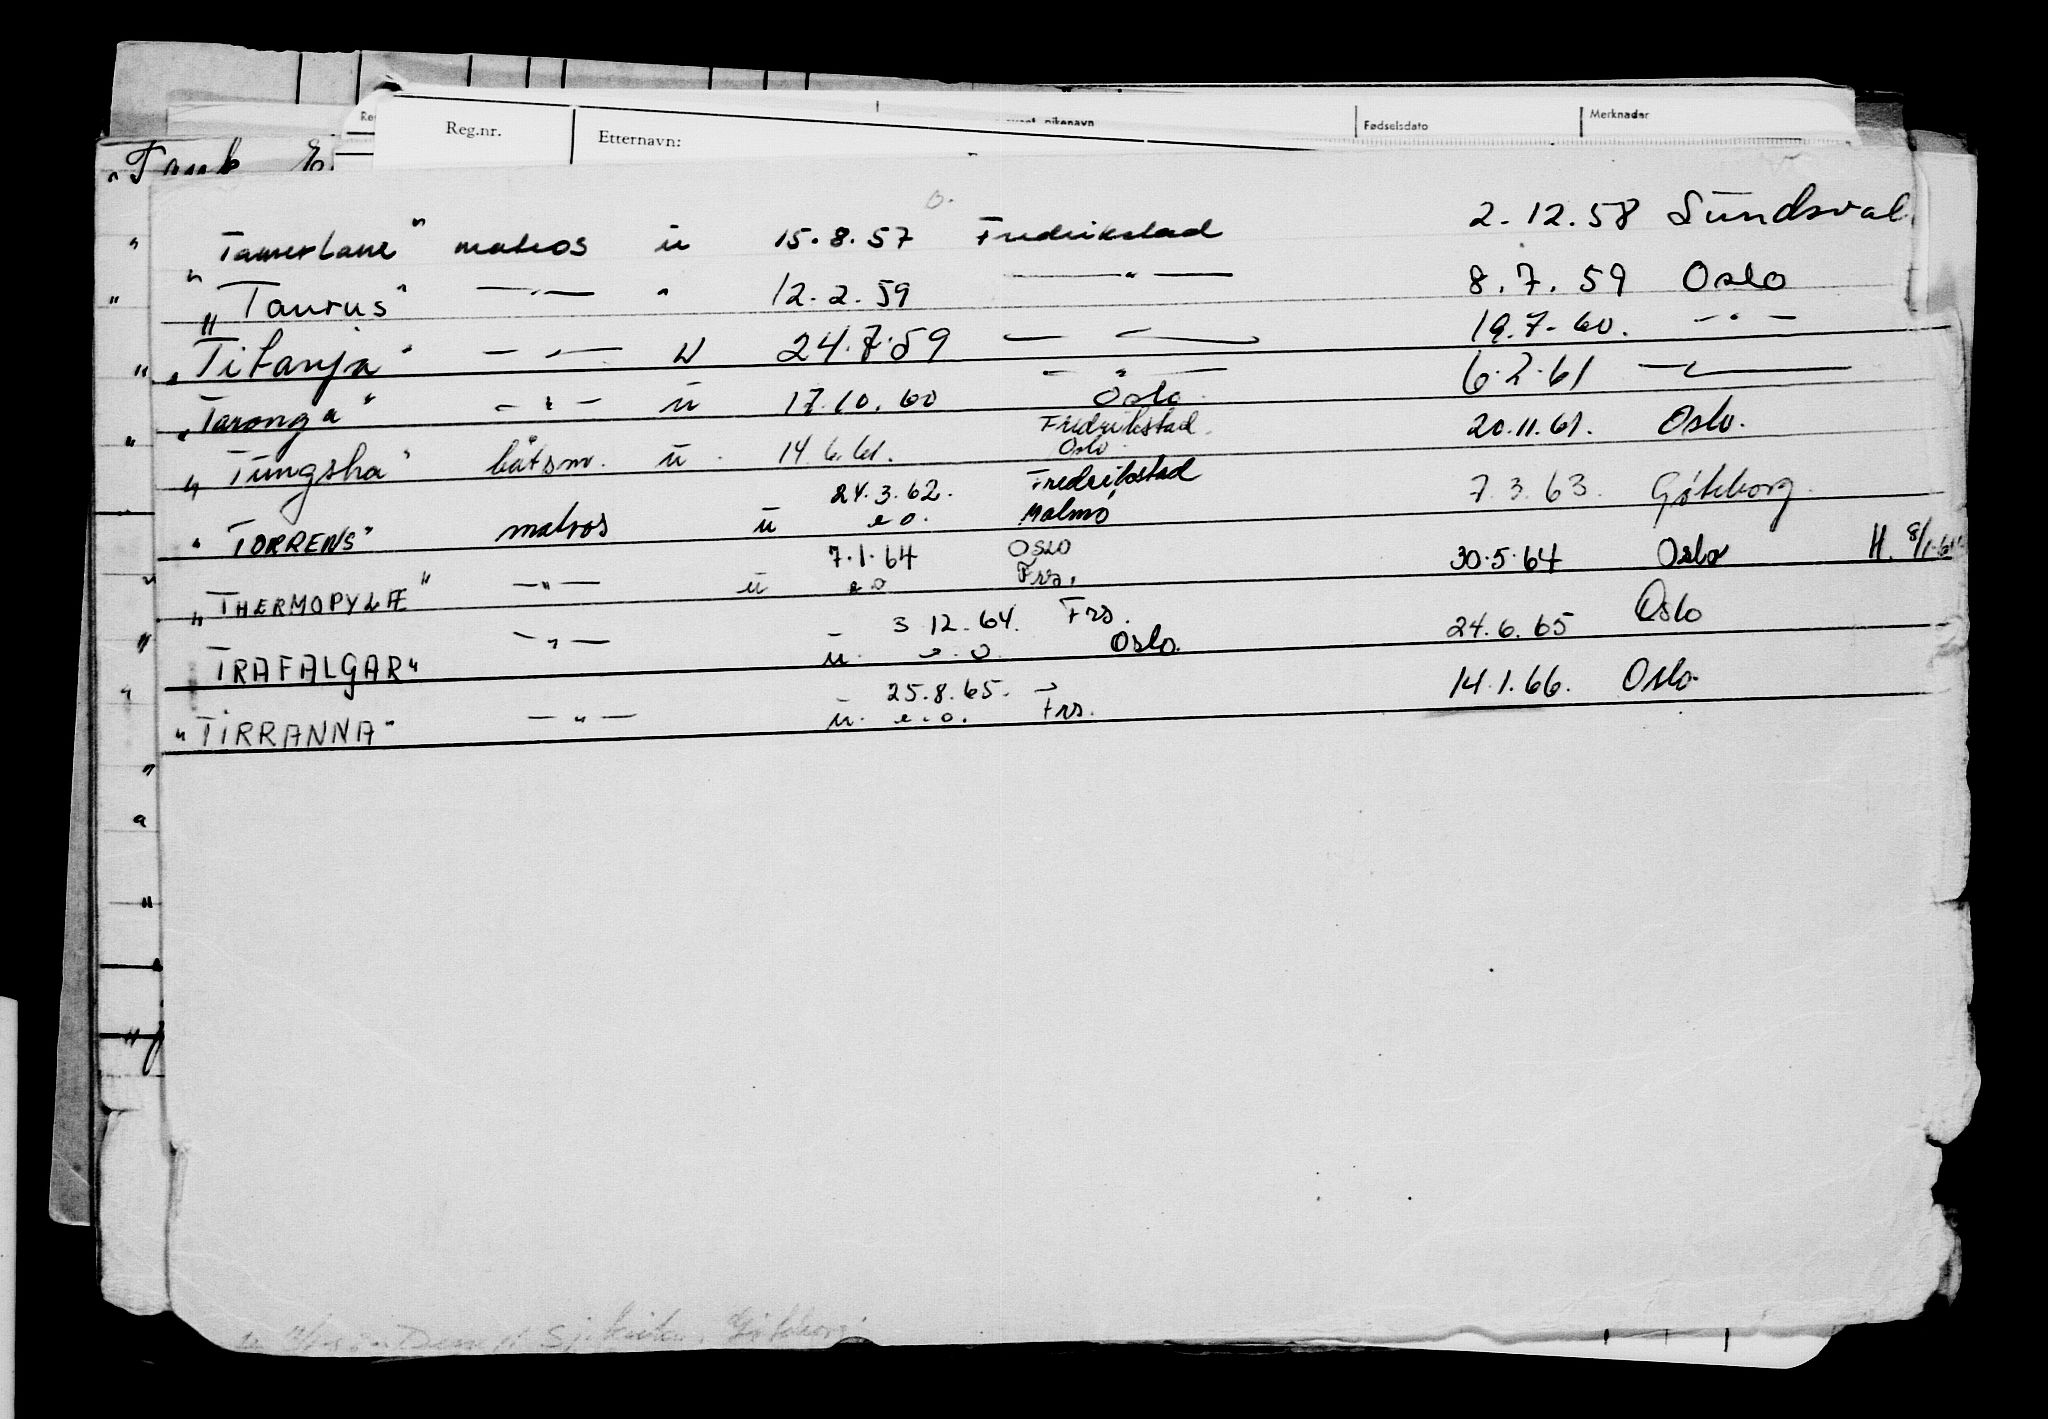 Reg.nr. Etternavn: Fødselsdato Merknader
"Tamerlane" matros u 15.8.57 Fredrikstad 2.12.58 Sundsval
"Taurus" — " — " 12.2.59 — " — 8.7.59 Oslo
"Titanja" — " — u 24.7.59 — " — 19.7.60. — " —
"Taronga" — " — u 17.10.60 — " — Oslo 6.2.61 — " —
"Tungsha" båtsm. u. 14.6.61. Fredrikstad Oslo 20.11.61. Oslo.
24.3.62. Fredrikstad
"TORRENS" matros u e o. Malmö 7.3.63. Gøteborg.
7.1.64 Oslo
"THERMOPYLÆ" — " — u e o Frs. 30.5.64 Oslo H.
3 12.64. Frs.
"TRAFALGAR" — " — u. e.o. Oslo. 24.6.65 Oslo
25.8.65.
"TIRRANNA" — " — u. e.o. Frs. 14.1.66. Oslo